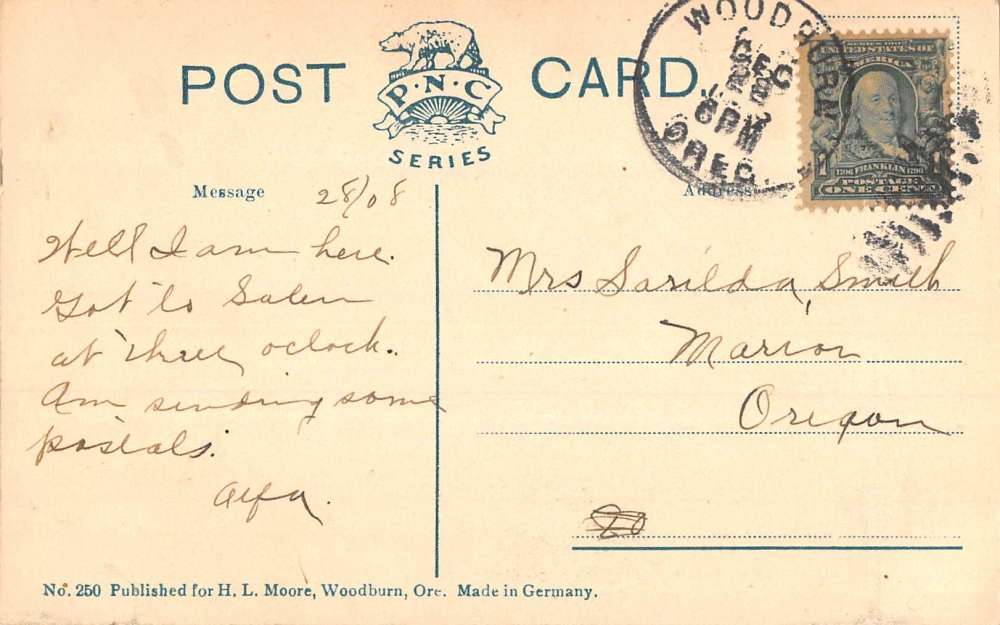 POST CARD.
P·N·C
SERIES
WOODBURN
DEC
28
6 PM
OREG.
SERIES 1902
UNITED STATES OF
AMERICA
1706 FRANKLIN 1790
POSTAGE
1 ONE CENT 1
Message
Address
28/08
Well I am here.
Got to Salem
at three oclock.
Am sending some
postals.
Alfa.
Mrs Sarilda, Smith
Marion
Oregon
No. 250 Published for H. L. Moore, Woodburn, Ore. Made in Germany.